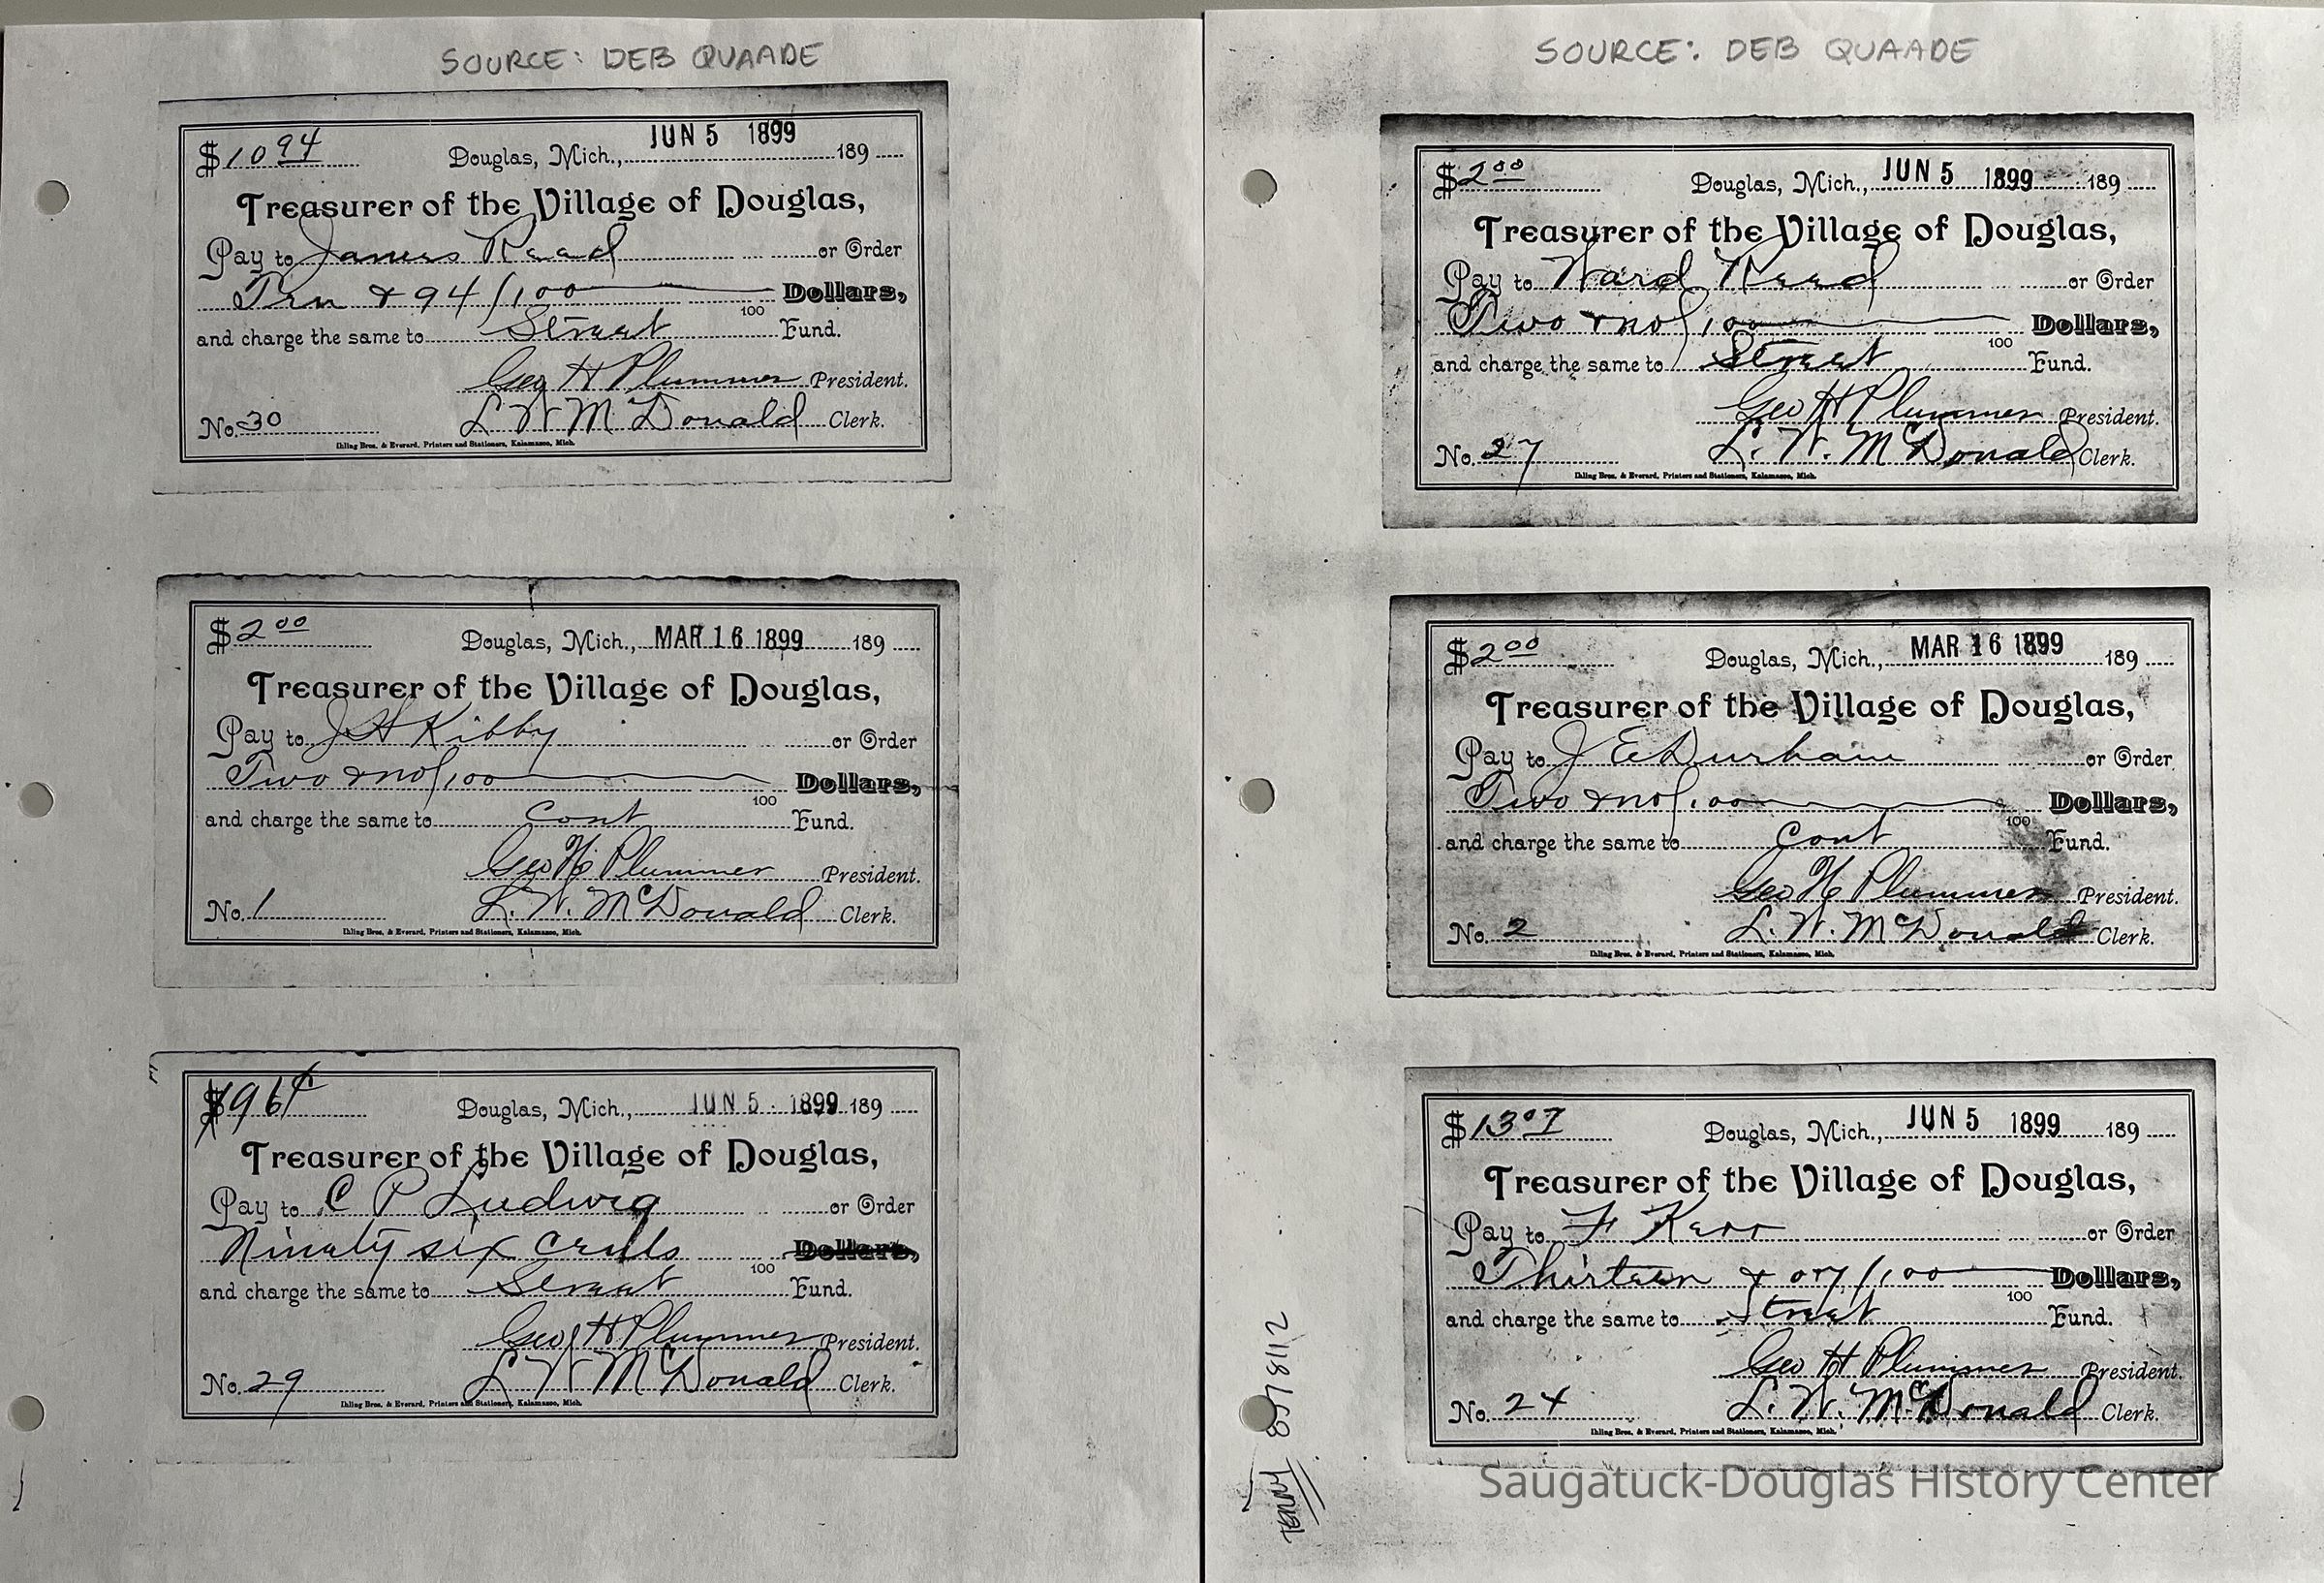 SOURCE: DEB QUAADE
$10 94 Douglas, Mich., JUN 5 1899 189
Treasurer of the Village of Douglas,
Pay to James Reed or Order
Ten & 94/100 Dollars,
100
and charge the same to Street Fund.
Geo H Plummer President.
No. 30 L W McDonald Clerk.
Ihling Bros. & Everard, Printers and Stationers, Kalamazoo, Mich.
$2 00 Douglas, Mich., MAR 16 1899 189
Treasurer of the Village of Douglas,
Pay to J H Kibby or Order
Two & no/100 Dollars,
100
and charge the same to Cont Fund.
Geo H Plummer President.
No. 1 L. W. McDonald Clerk.
Ihling Bros. & Everard, Printers and Stationers, Kalamazoo, Mich.
$96¢ Douglas, Mich., JUN 5 1899 189
Treasurer of the Village of Douglas,
Pay to C P Ludwig or Order
Ninety six cents Dollars,
100
and charge the same to Street Fund.
Geo H Plummer President.
No. 29 L W McDonald Clerk.
Ihling Bros. & Everard, Printers and Stationers, Kalamazoo, Mich.
SOURCE: DEB QUAADE
$2 00 Douglas, Mich., JUN 5 1899 189
Treasurer of the Village of Douglas,
Pay to Ward Reed or Order
Two & no/100 Dollars,
100
and charge the same to Street Fund.
Geo H Plummer President.
No. 27 L. W. McDonald Clerk.
Ihling Bros. & Everard, Printers and Stationers, Kalamazoo, Mich.
$2 00 Douglas, Mich., MAR 16 1899 189
Treasurer of the Village of Douglas,
Pay to J E Durham or Order
Two & no/100 Dollars,
100
and charge the same to Cont Fund.
Geo H Plummer President.
No. 2 L. W. McDonald Clerk.
Ihling Bros. & Everard, Printers and Stationers, Kalamazoo, Mich.
$13 07 Douglas, Mich., JUN 5 1899 189
Treasurer of the Village of Douglas,
Pay to F Kerr or Order
Thirteen & 07/100 Dollars,
100
and charge the same to Street Fund.
Geo H Plummer President.
No. 24 L. W. McDonald Clerk.
Ihling Bros. & Everard, Printers and Stationers, Kalamazoo, Mich.
Saugatuck-Douglas History Center